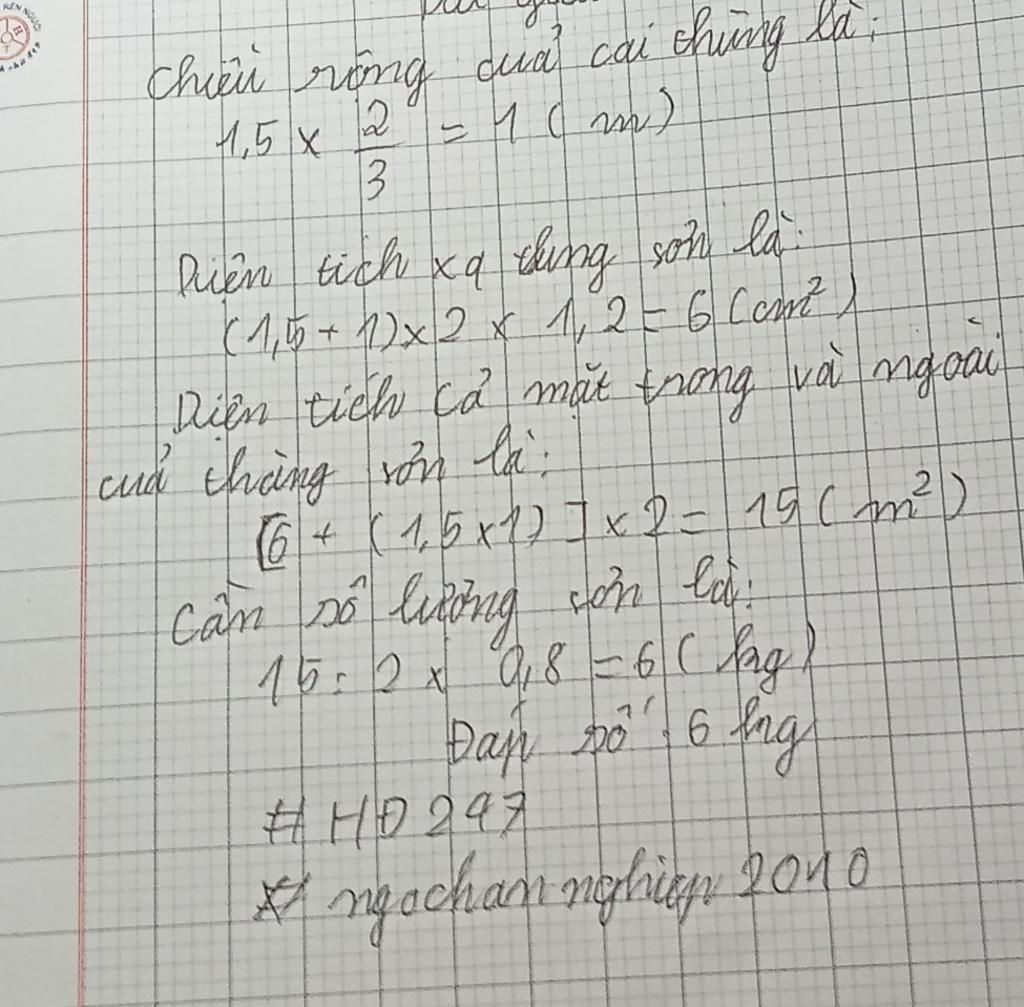 Chiều rộng của cái thùng là:
1,5 × 2/3 = 1 (m)
Diện tích xq thùng sơn là:
(1,5 + 1) × 2 × 1,2 = 6 (cm²)
Diện tích cả mặt trong và ngoài
của thùng sơn là:
[6 + (1,5 × 1)] × 2 = 15 (m²)
Cần số lượng sơn là:
15 : 2 × 0,8 = 6 (kg)
Đáp số : 6 kg
# HĐ 247